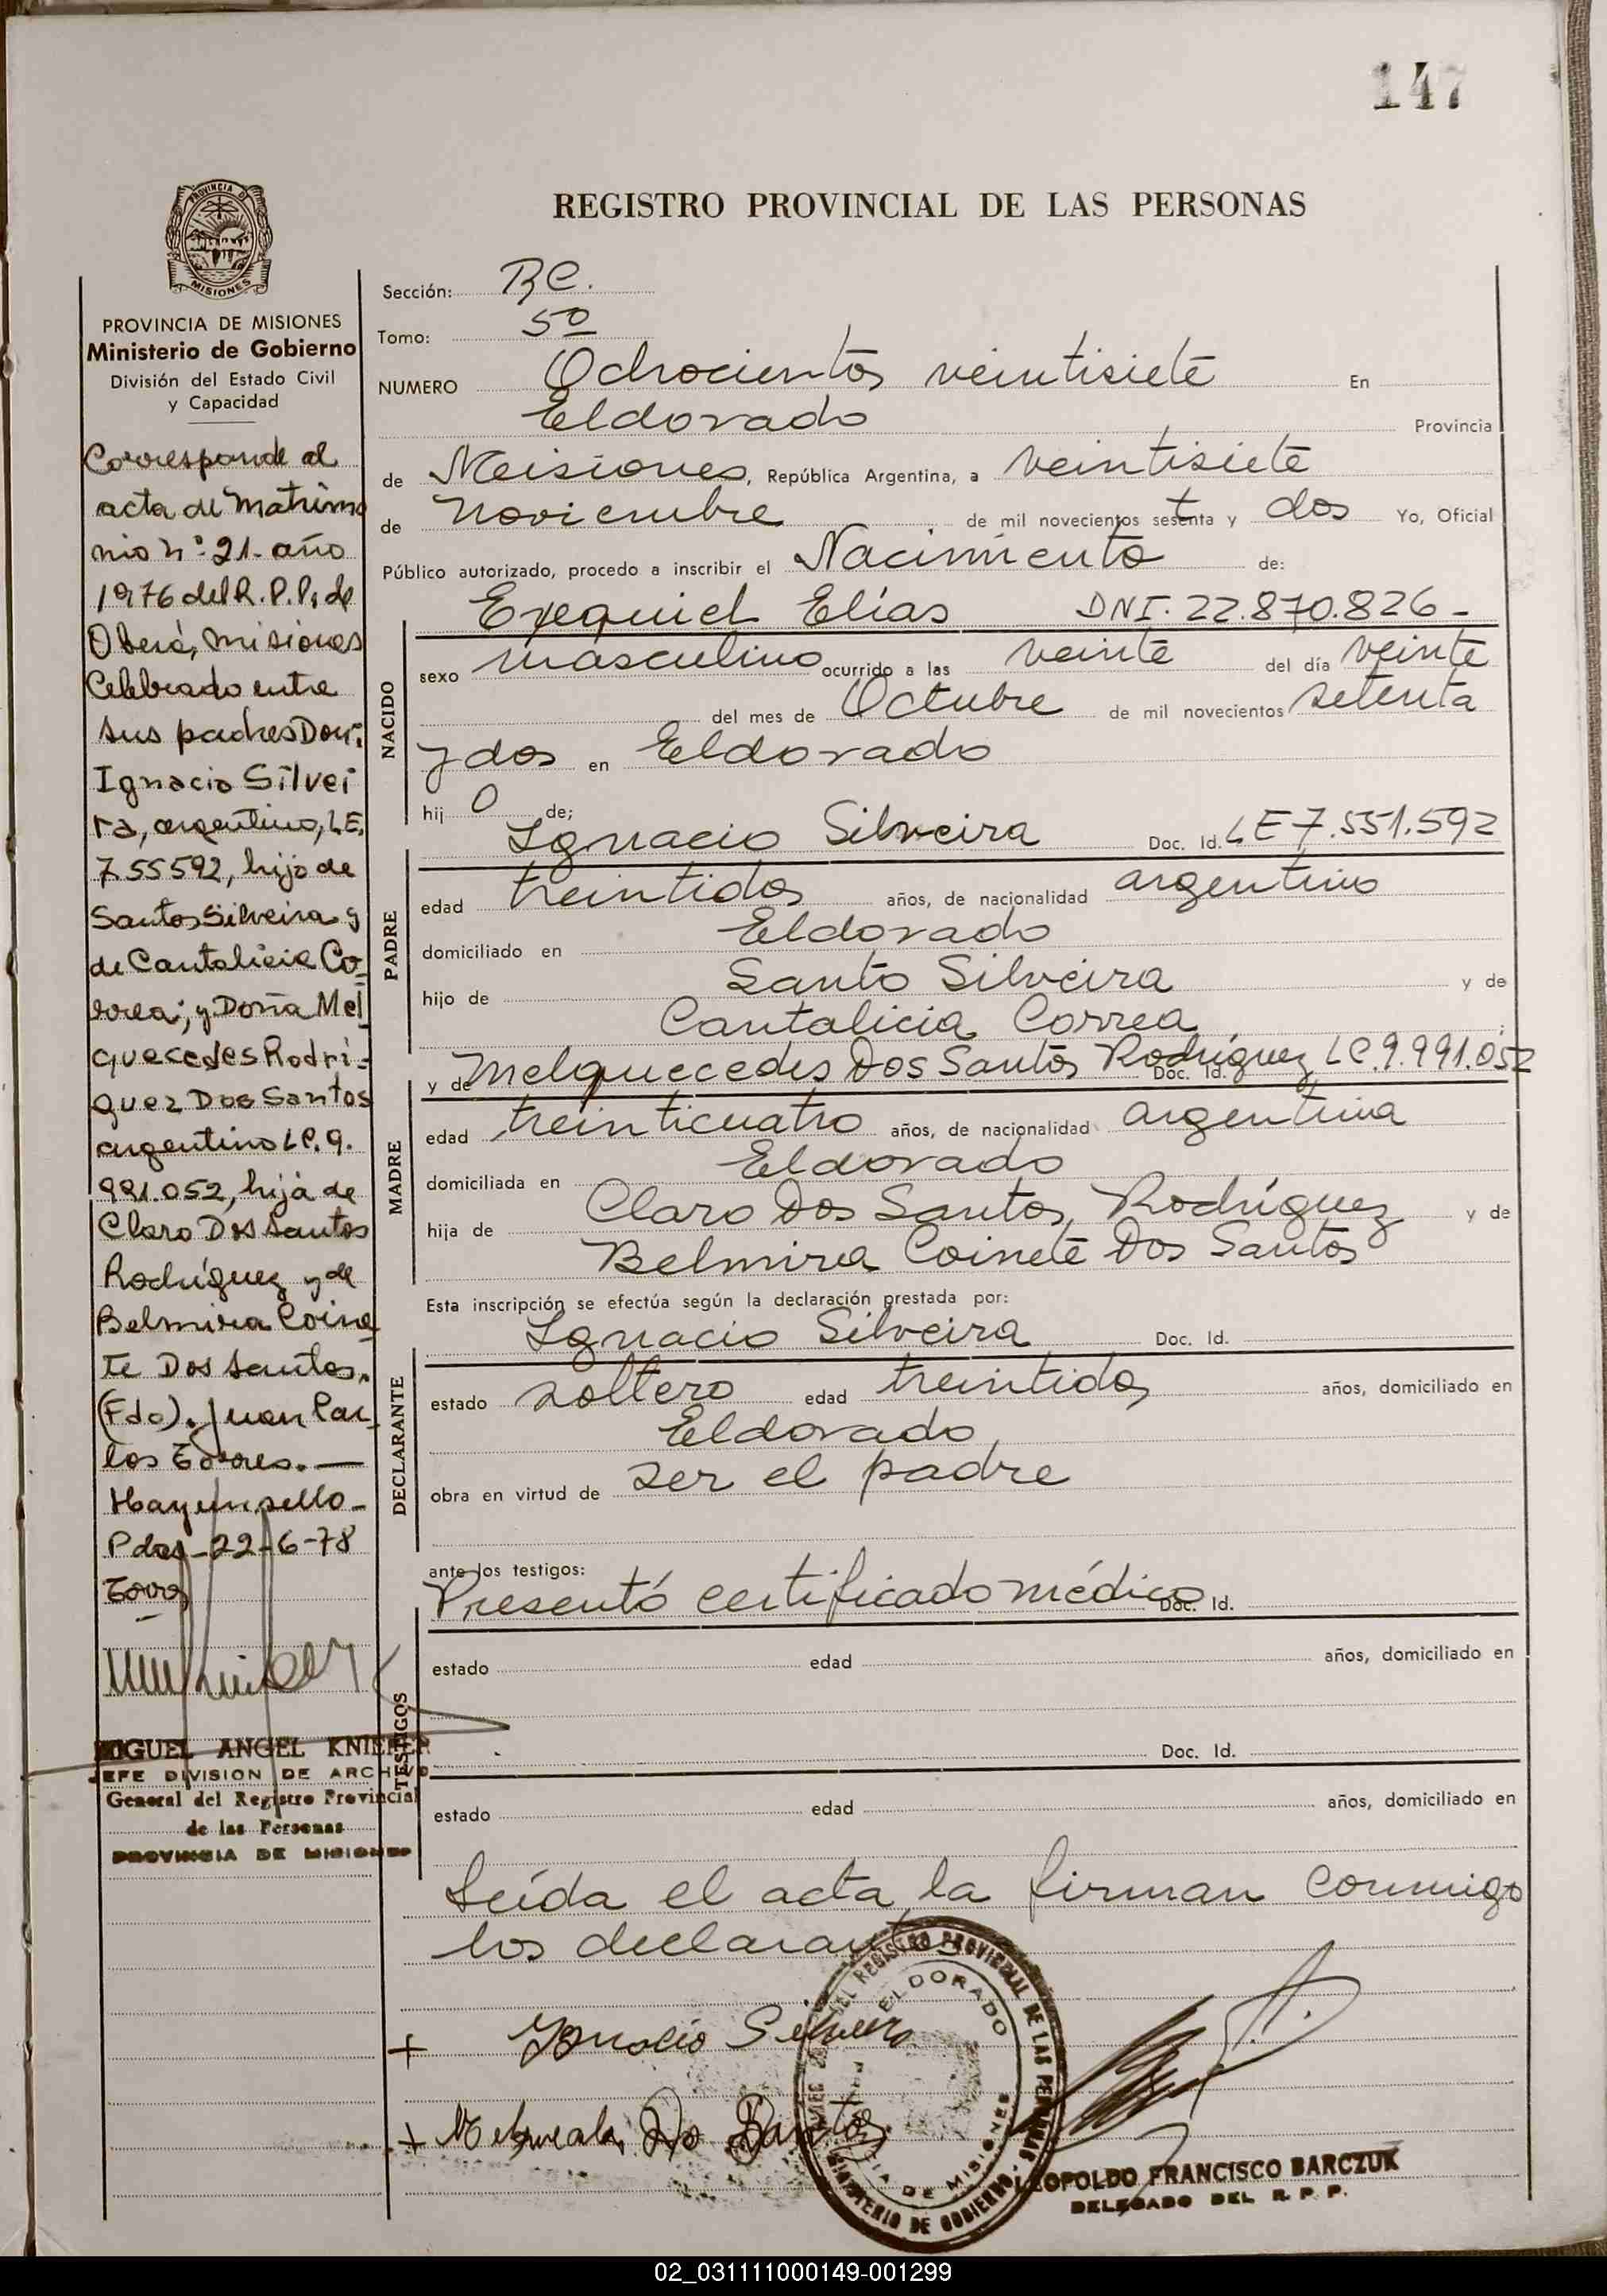 147
PROVINCIA DE
MISIONES
PROVINCIA DE MISIONES
Ministerio de Gobierno
División del Estado Civil
y Capacidad
Corresponde al
acta de Matrimo
nio nº 21- año
1976 del R.P.P. de
Oberá, Misiones
Celebrado entre
sus padres Don:
Ignacio Silvei
ra, argentino, LE.
7.55592, hijo de
Santos Silveira y
de Cantalicia Co-
rrea; y Doña Mel
quecedes Rodri-
guez Dos Santos
argentino LC. 9.
991.052, hija de
Claro Dos Santos
Rodríguez y de
Belmira Coine
te Dos Santos.
(Fdo). Juan Car-
los Torres.—
Hay un sello-
Pdas-22-6-78
MIGUEL ANGEL KNIEFER
JEFE DIVISION DE ARCHIVO
General del Registro Provincial
de las Personas
PROVINCIA DE MISIONES
REGISTRO PROVINCIAL DE LAS PERSONAS
Sección: RC.
Tomo: 5º
NUMERO Ochocientos veintisiete En
Eldorado Provincia
de Misiones, República Argentina, a veintisiete
de Noviembre de mil novecientos setenta y dos Yo, Oficial
Público autorizado, procedo a inscribir el Nacimiento de:
Exequiel Elías DNI. 22.870.826-
NACIDO
sexo masculino ocurrido a las veinte del día veinte
del mes de Octubre de mil novecientos setenta
y dos en Eldorado
hij o de;
Ignacio Silveira Doc. Id. LE 7.551.592
PADRE
edad treintidos años, de nacionalidad argentino
domiciliado en Eldorado
hijo de Santo Silveira y de
Cantalicia Correa ;
y de Melquecedes Dos Santos Rodríguez Doc. Id. LC.9.991.052
MADRE
edad treinticuatro años, de nacionalidad argentina
domiciliada en Eldorado
hija de Claro Dos Santos Rodríguez y de
Belmira Coinete Dos Santos
Esta inscripción se efectúa según la declaración prestada por:
Ignacio Silveira Doc. Id.
DECLARANTE
estado soltero edad treintidos años, domiciliado en
Eldorado
obra en virtud de ser el padre
ante los testigos:
Presentó certificado médico Doc. Id.
TESTIGOS
estado edad años, domiciliado en
Doc. Id.
estado edad años, domiciliado en
Leída el acta la firman conmigo
los declarantes
+ Ignacio Silveira
+ Dos Santos
REGISTRO PROVINCIAL DE LAS PERSONAS
ELDORADO
DE MISIONES
MINISTERIO DE GOBIERNO
LEOPOLDO FRANCISCO BARCZUK
DELEGADO DEL R. P. P.
02_031111000149-001299